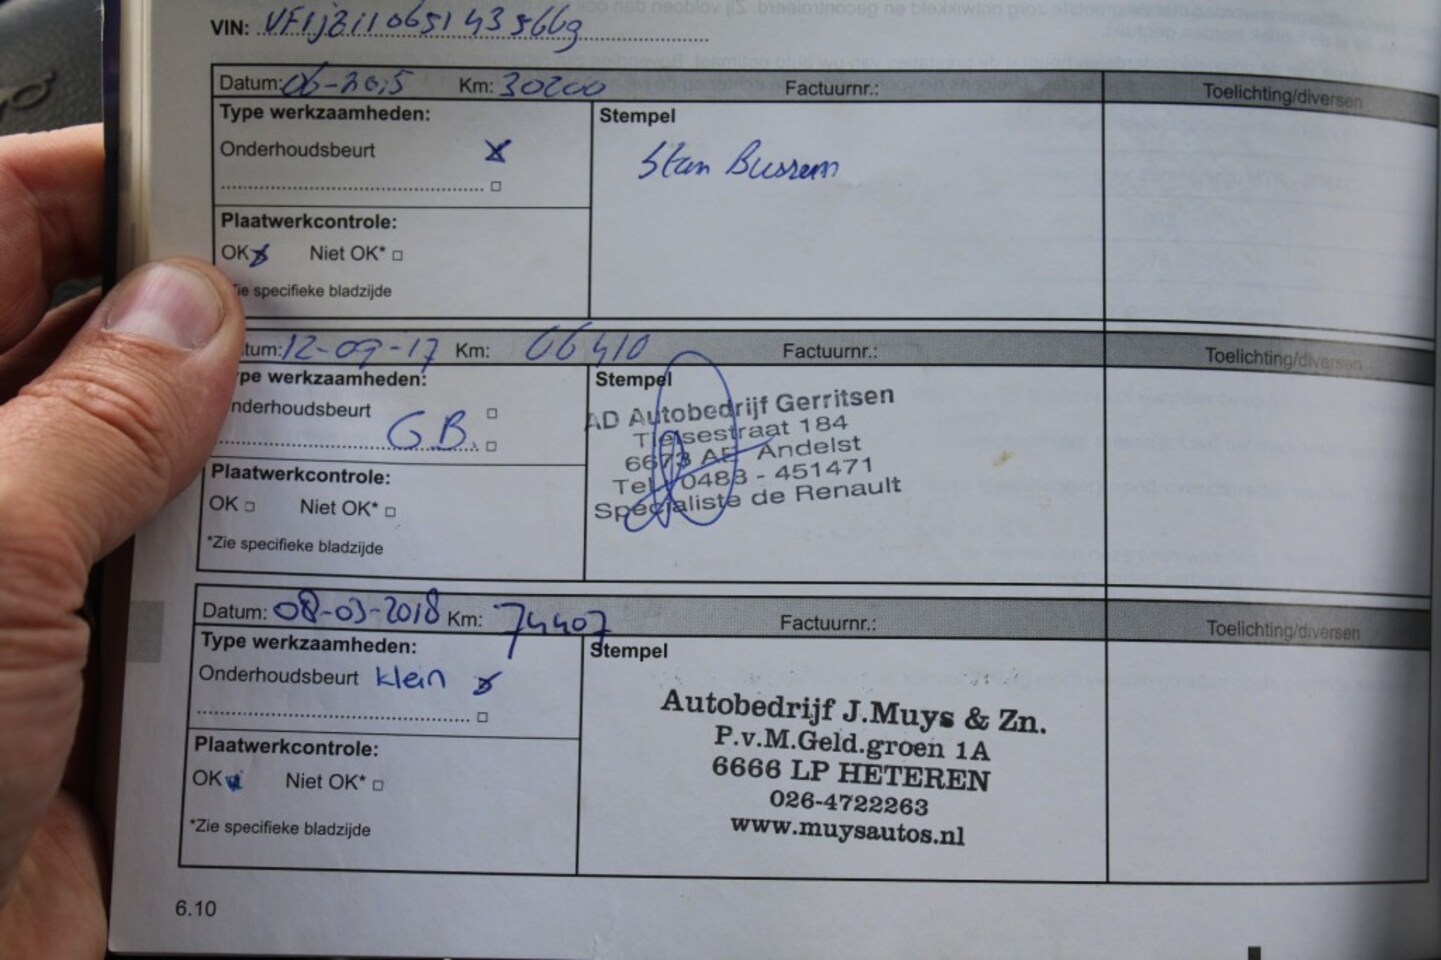 VIN: VF1jZ110651435669
Datum: 06-2015 Km: 30200 Factuurnr.: Toelichting/diversen
Type werkzaamheden: Stempel
Onderhoudsbeurt
Stan Bussum
Plaatwerkcontrole:
OK Niet OK*
ie specifieke bladzijde
tum: 12-09-17 Km: 66410 Factuurnr.: Toelichting/diversen
ype werkzaamheden: Stempel
nderhoudsbeurt
G.B.
AD Autobedrijf Gerritsen
Tielsestraat 184
6673 AE Andelst
Tel. 0488 - 451471
Specialiste de Renault
Plaatwerkcontrole:
OK Niet OK*
*Zie specifieke bladzijde
Datum: 08-03-2018 Km: 74407 Factuurnr.: Toelichting/diversen
Type werkzaamheden: Stempel
Onderhoudsbeurt klein
Autobedrijf J.Muys & Zn.
P.v.M.Geld.groen 1A
6666 LP HETEREN
026-4722263
www.muysautos.nl
Plaatwerkcontrole:
OK Niet OK*
*Zie specifieke bladzijde
6.10